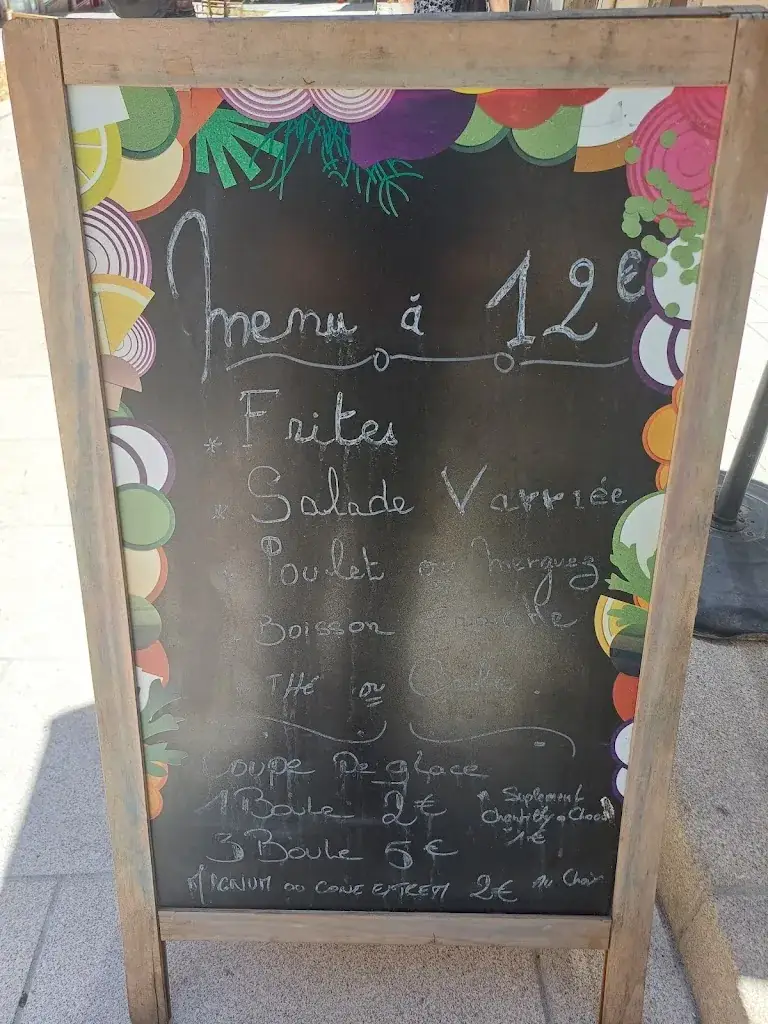 Menu à 12€
* Frites
* Salade Varriée
* Poulet ou Merguez
* Boisson
* THé ou Café
Coupe De glace
1 Boule 2€
3 Boule 5€
* Suplement
Chantilly o Choco
1€
MAGNUM ou CONE EXTREM 2€ Au Choix